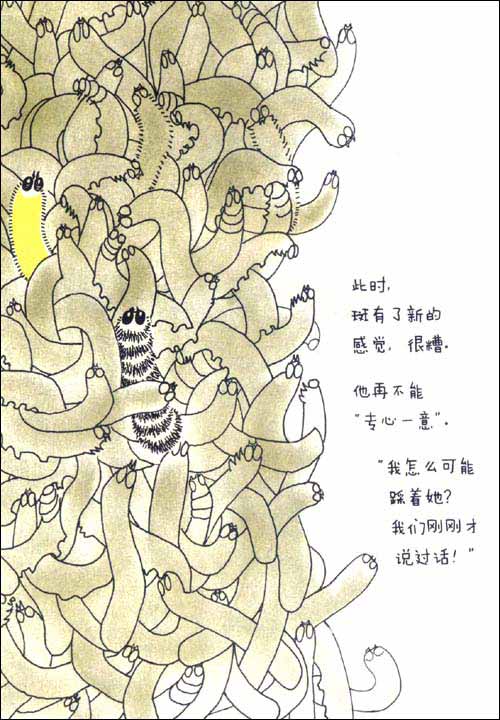 此时，
斑有了新的
感觉，很糟。
他再不能
“专心一意”。
“我怎么可能
踩着她？
我们刚刚才
说过话！”